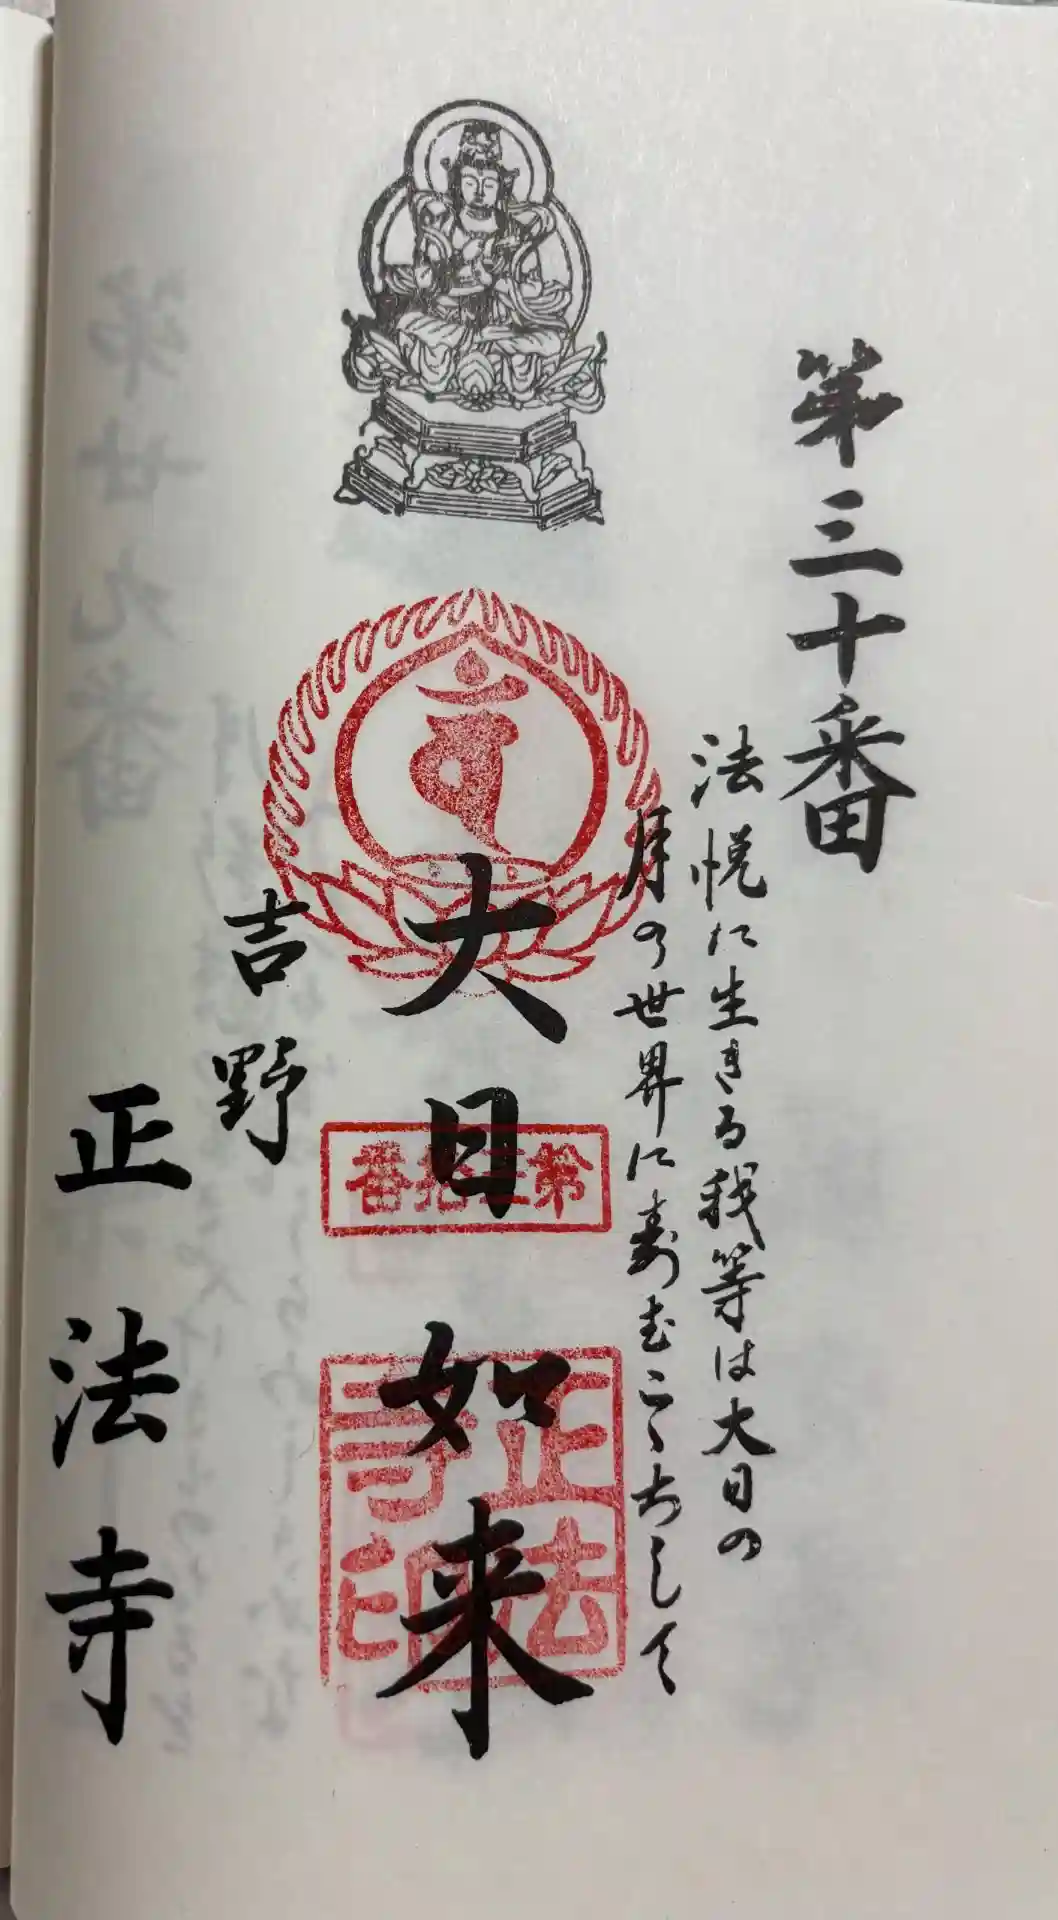 第三十番
法悦に生きる我等は大日の
月の世界に寿むこゝちして
大日如来
第三拾番
正法寺印
吉野
正法寺
第廿九番